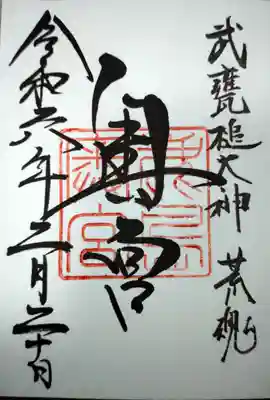 武甕槌大神 荒魂
奥宮
令和六年二月二十日